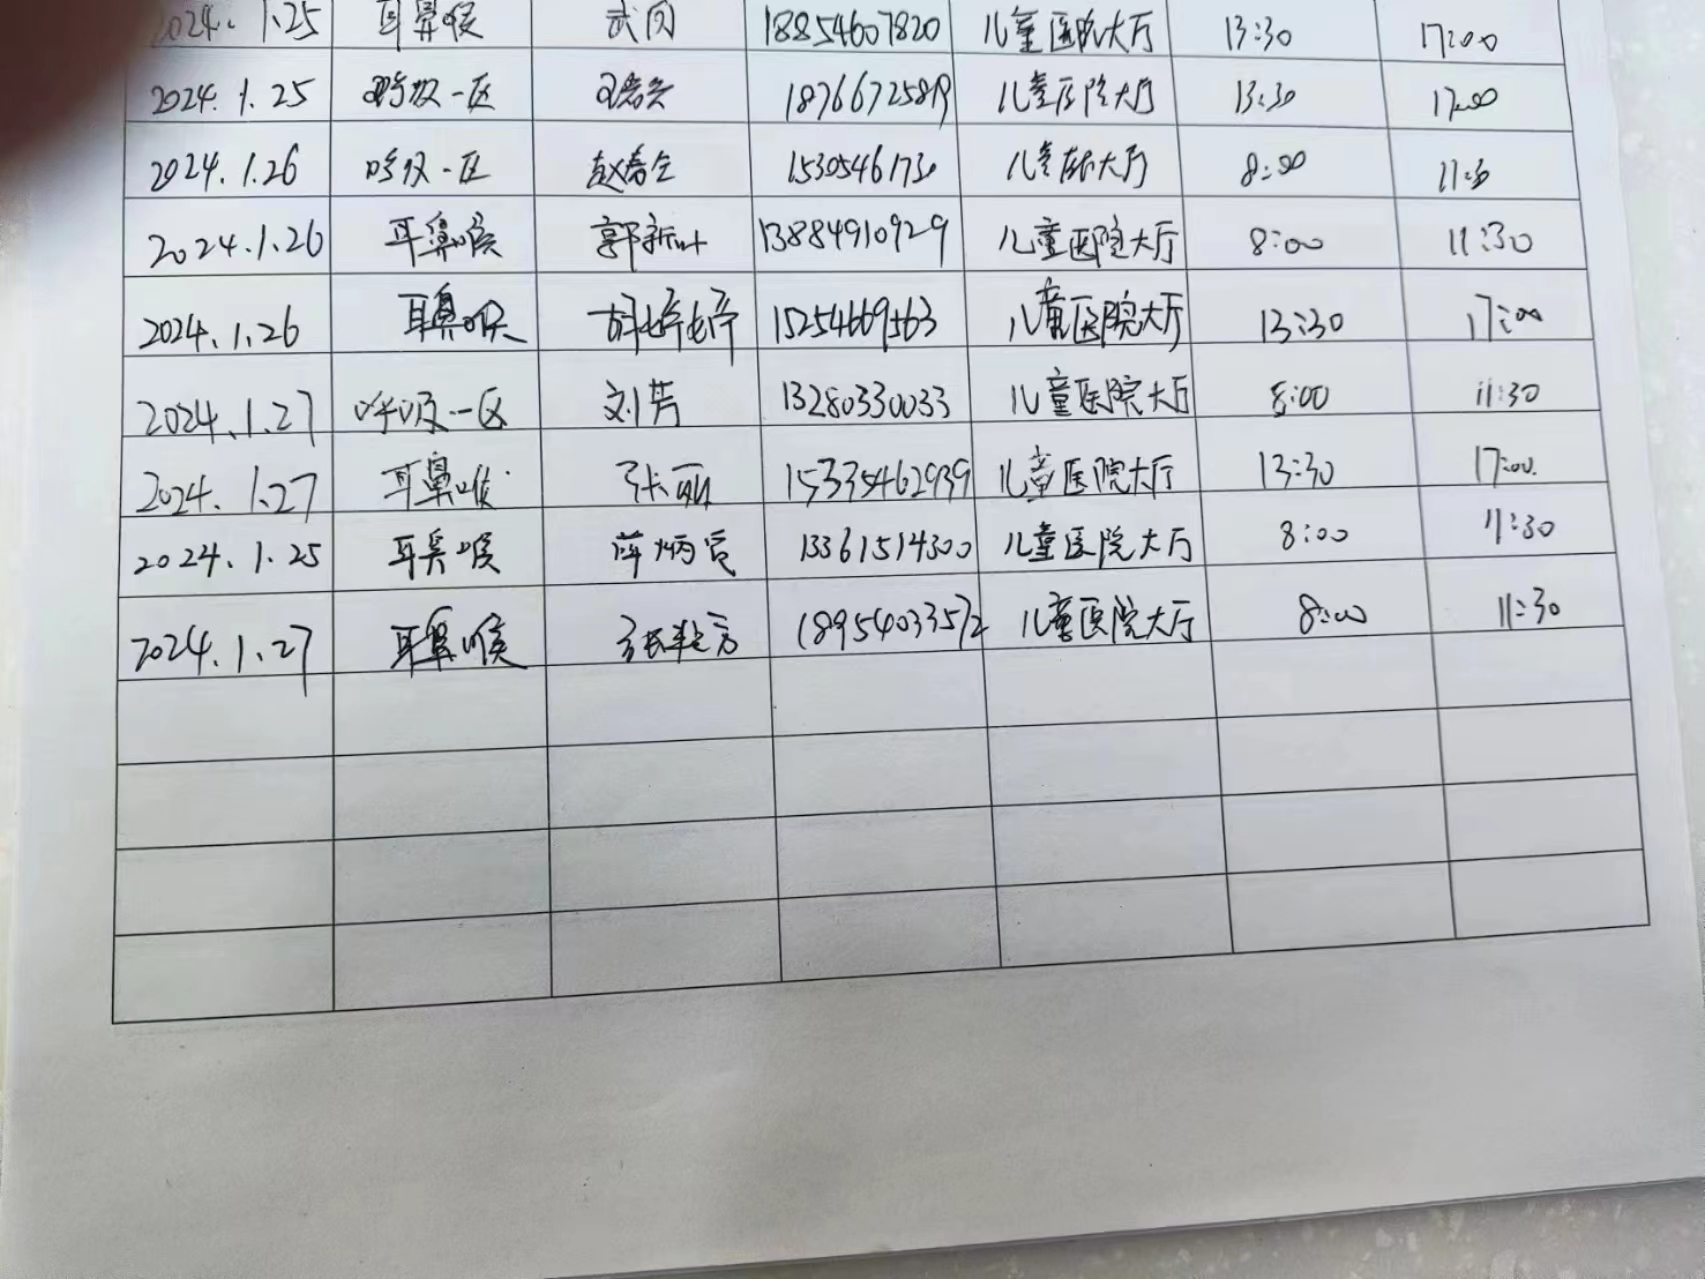 2024. 1.25 耳鼻喉 武冈 18854607820 儿童医院大厅 13:30 17:00
2024. 1.25 呼吸一区 18766725819 儿童医院大厅 13:30 17:00
2024. 1.26 呼吸一区 赵春兰 1530546173 儿童医院大厅 8:00 11:30
2024.1.26 耳鼻喉 郭新叶 13884910929 儿童医院大厅 8:00 11:30
2024.1.26 耳鼻喉 胡婷婷 15254669563 儿童医院大厅 13:30 17:00
2024.1.27 呼吸一区 刘芳 13280330033 儿童医院大厅 8:00 11:30
2024. 1.27 耳鼻喉 张丽 15335462939 儿童医院大厅 13:30 17:00.
2024. 1.25 耳鼻喉 薛炳 13361514300 儿童医院大厅 8:00 11:30
2024.1.27 耳鼻喉 张 18954033572 儿童医院大厅 8:00 11:30